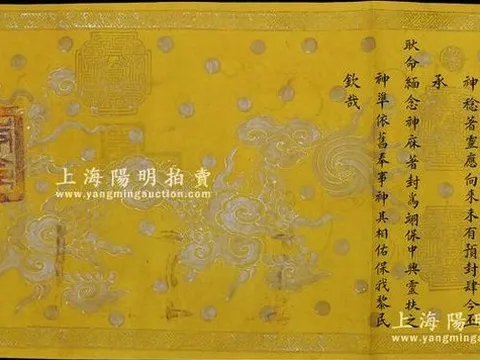 神稔著靈應向來未有預封肆今丕
承
耿命緬念神庥著封爲翊保中興靈扶之
神準依舊奉事神其相佑保我黎民
欽哉
上海陽明拍賣
www.yangmingauction.com
上海陽明
www.yangmingau